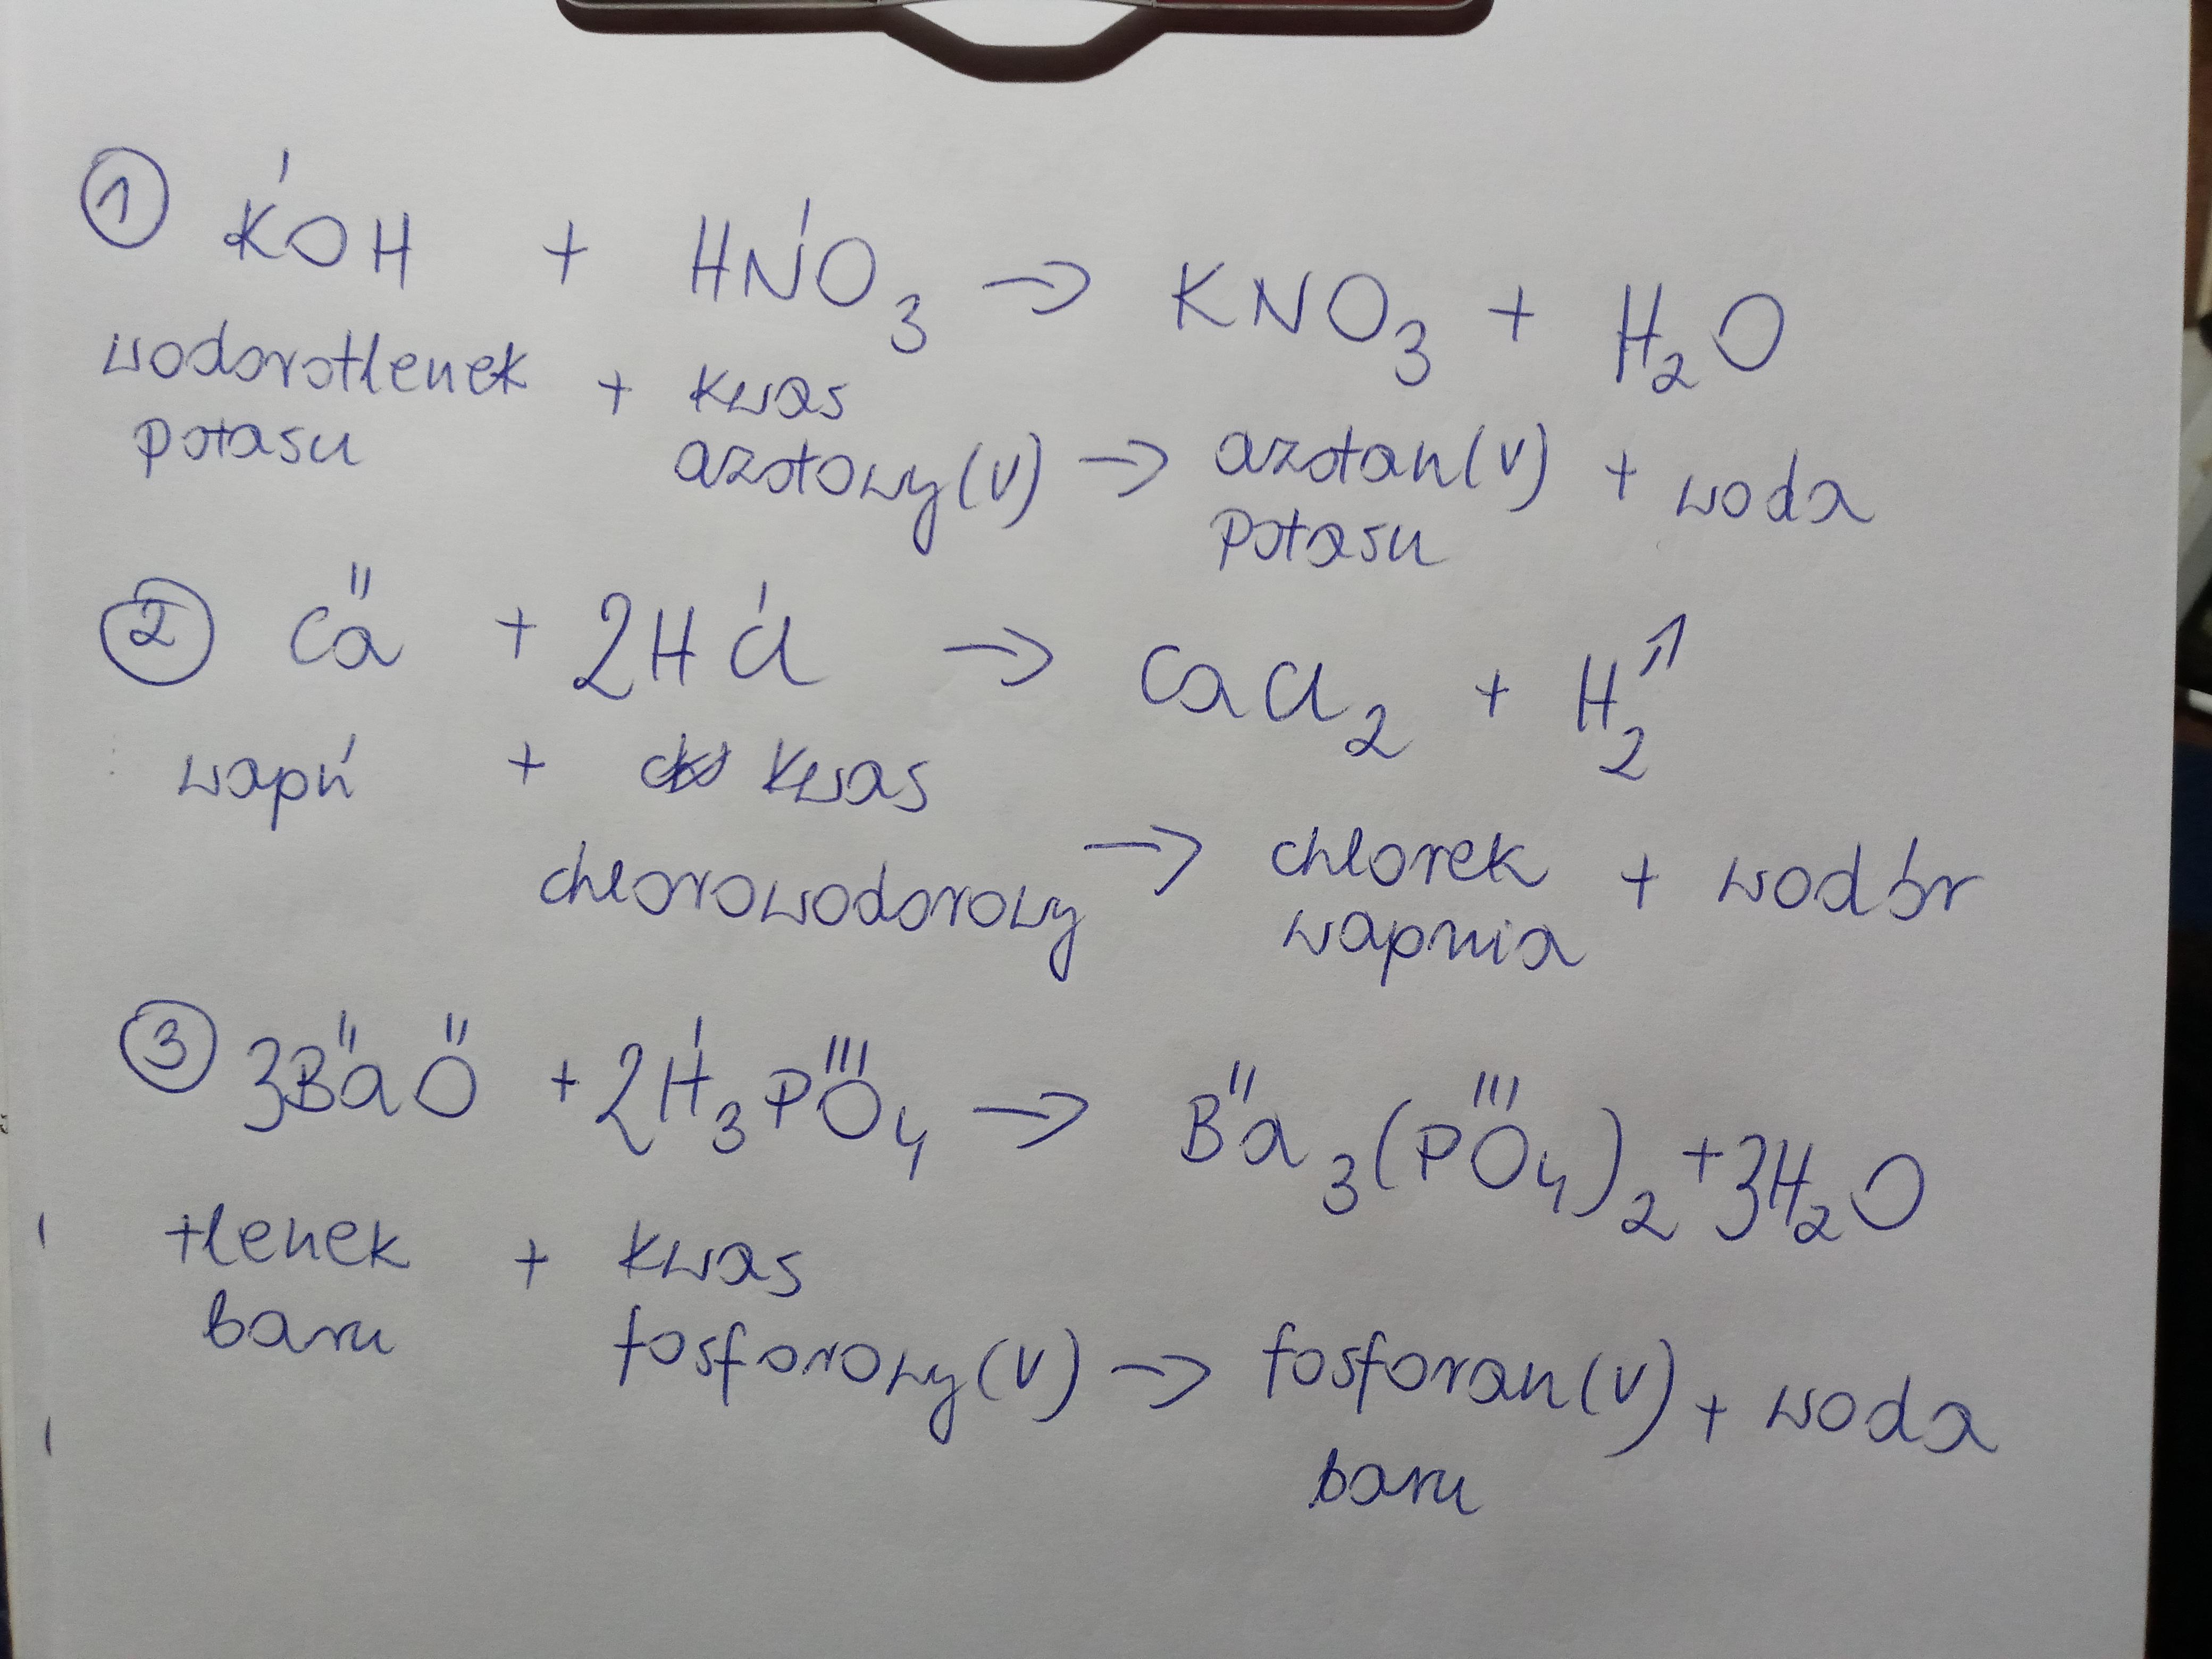 ① KᴵOH + HNᴵO₃ → KNO₃ + H₂O
wodorotlenek potasu + kwas azotowy(V) → azotan(V) potasu + woda
② Caᴵᴵ + 2HClᴵ → CaCl₂ + H₂↑
wapń + kwas chlorowodorowy → chlorek wapnia + wodór
③ 3BaᴵᴵOᴵᴵ + 2Hᴵ₃POᴵᴵᴵ₄ → Baᴵᴵ₃(POᴵᴵᴵ₄)₂ + 3H₂O
tlenek baru + kwas fosforowy(V) → fosforan(V) baru + woda